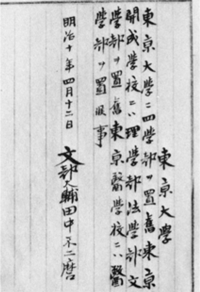 東京大学
東京大学ニ四学部ヲ置舊東京
開成学校ニハ理学部法学部文
学部ヲ置舊東京醫学校ニハ醫
学部ヲ置候事
明治十年四月十二日
文部大輔田中不二麿